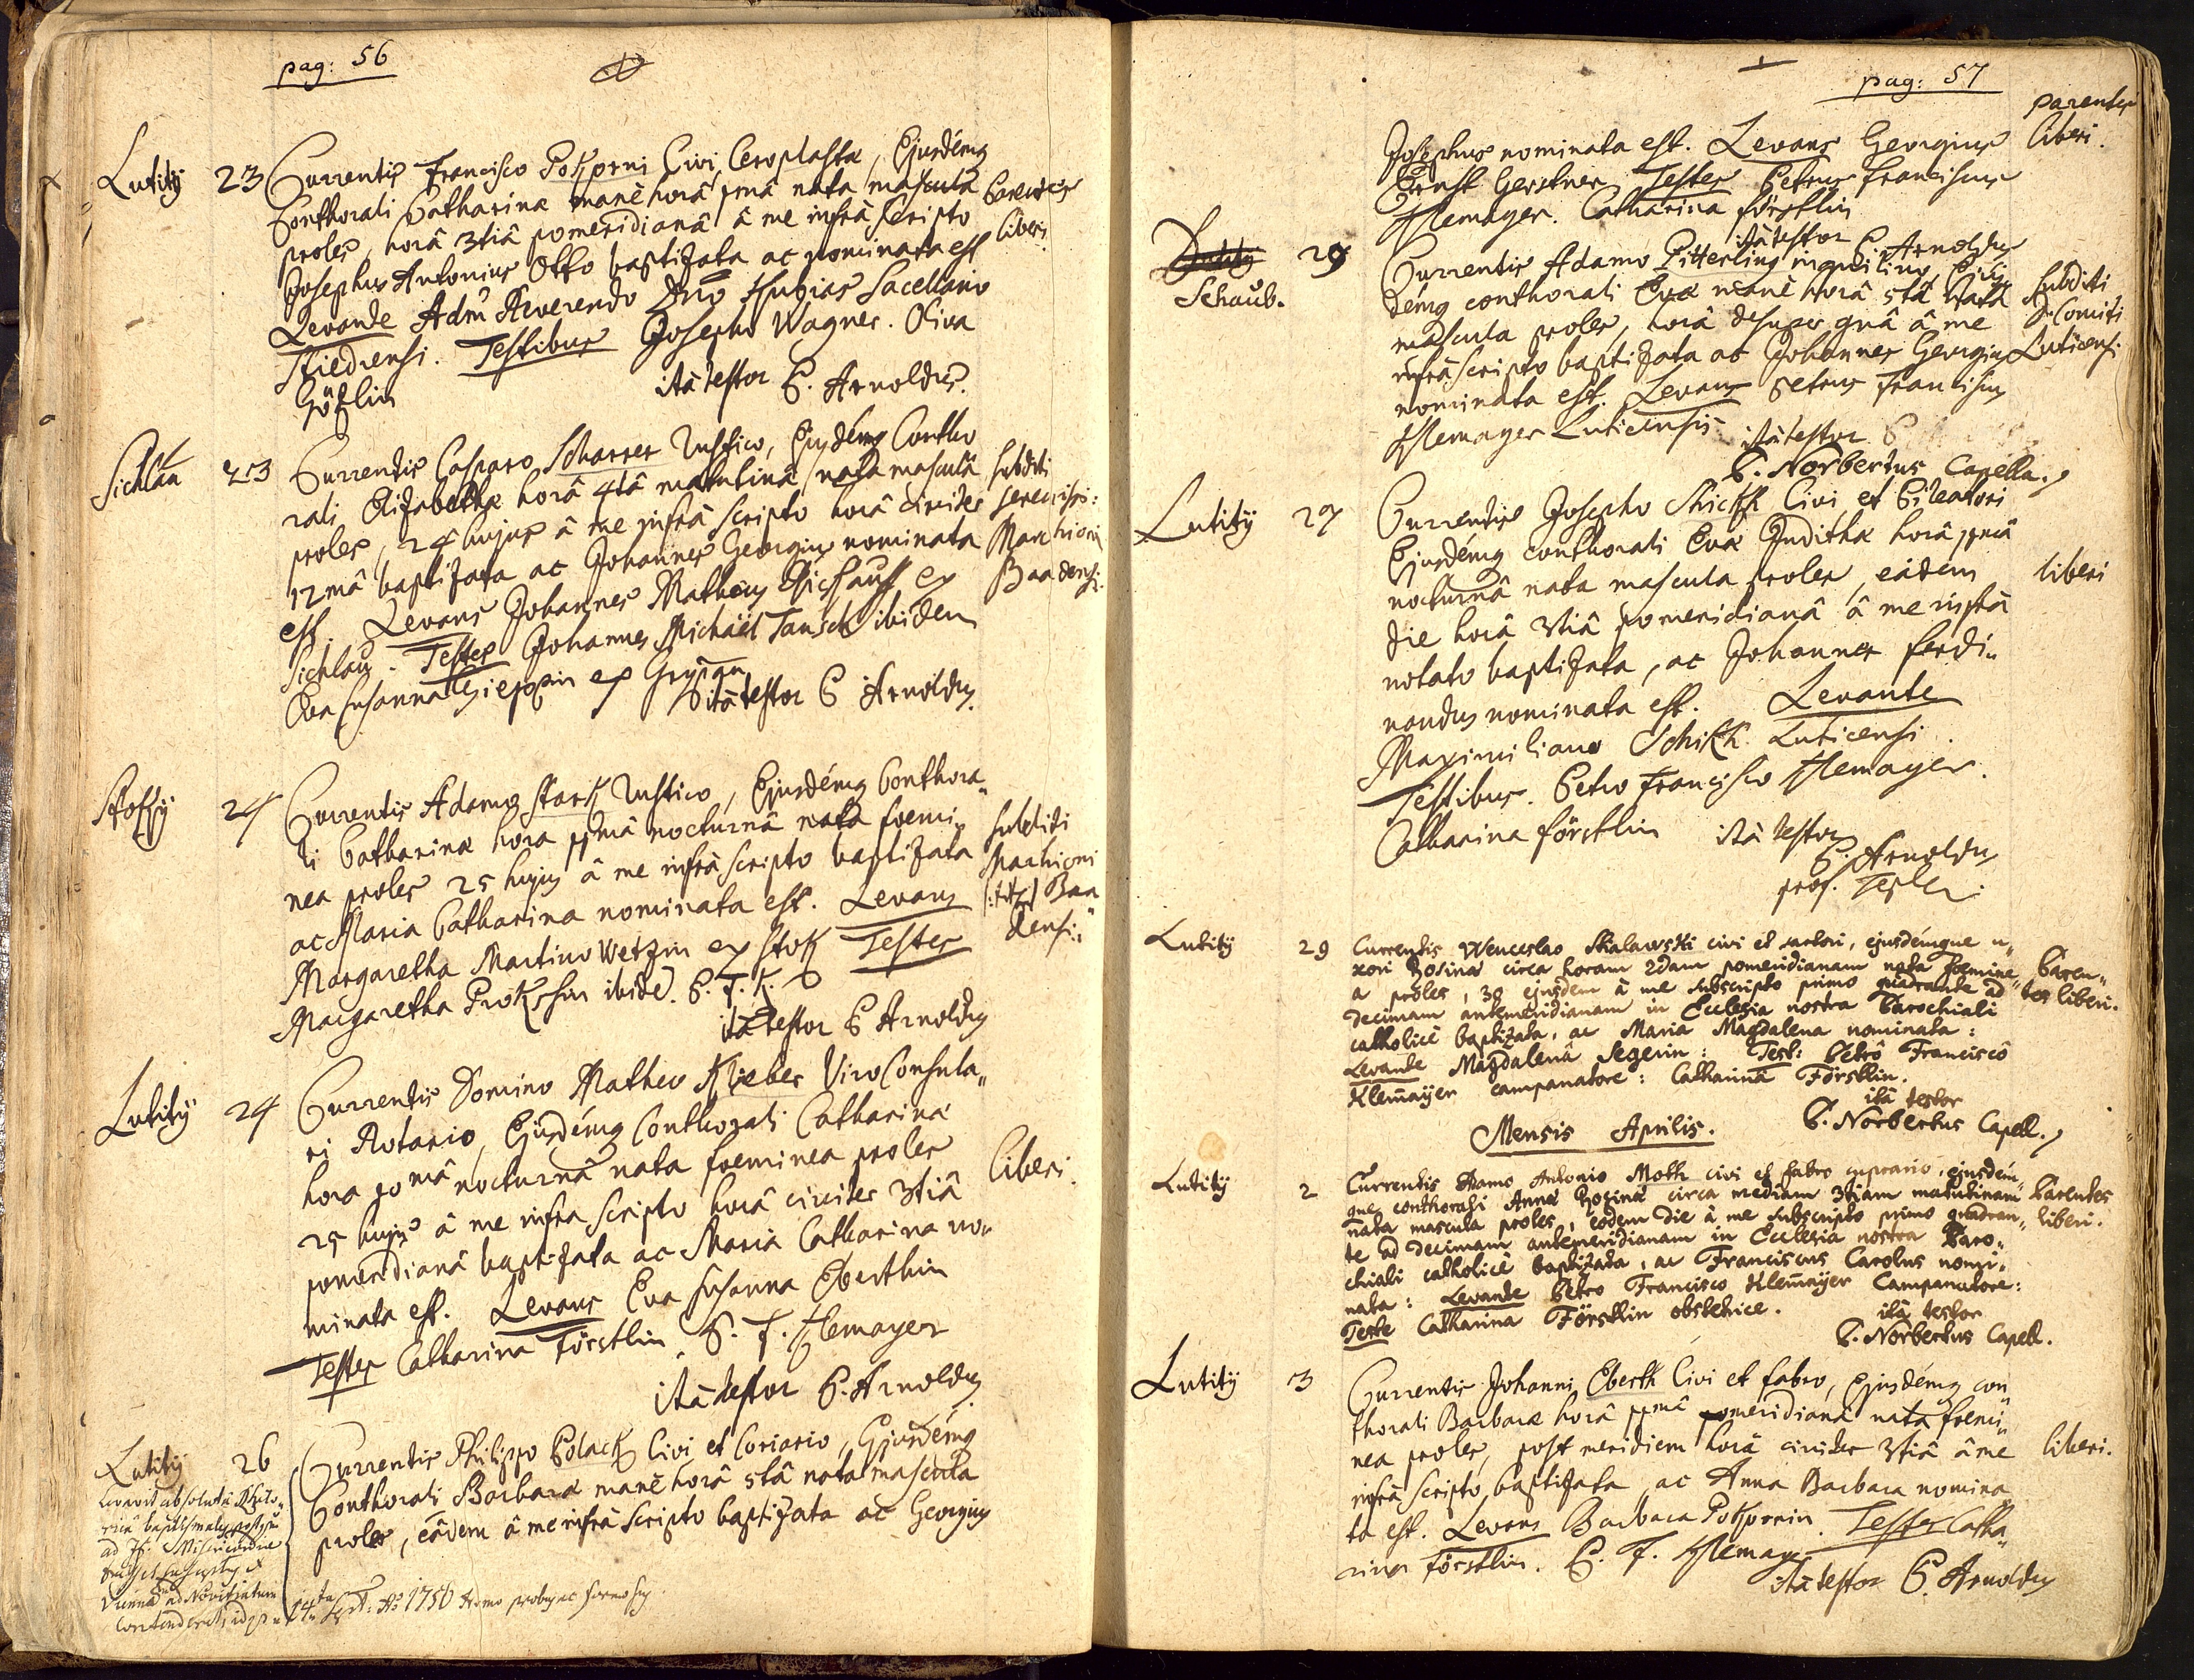 pag: 56
Lutitÿ 23 Currentis Francisco Pokorni Civi, Ceroplastæ, Ejusdémq
Conthorali Catharinæ manè horâ pmâ nata mascula Parentes
proles, horâ 3tiâ pomeridianâ â me infrà Scripto liberi
Josephus Antonius Otto baptizata ac nominata est
Levante Adm Reverendo Dno Sacellano
Stiedrensi. Testibus Josepho Wagner. Oliva
Götzlin itâ testor P. Arnoldus.
Sichlau 23 Currentis Casparo Scharrer Rustico, Ejusdémq Contho
rali Elizabethæ horâ 4tâ matutinâ nata masculâ subditi
proles, 24 hujus â me infrà Scripto horâ circiter
12mâ baptizata ac Johannes Georgius nominata Marchioni
est. Levans Johannes Matheus ex Baadensi.
Sichlau. Testes Johannes Michäel Tausch ibidem
Eva Susanna ex
itâ testor P Arnoldus.
24 Currentis Adamo Stark Rustico, Ejusdémq Conthora„
li Catharinæ hora nocturnâ nata foemi„ subditi
nea proles 25 hujus â me infrà scripto baptizata Marchioni
ac Maria Catharina nominata est. Levans Baa
Margaretha Martino Wetzin ex Stok Testes densi.
Margaretha Prokschin ibide. P. F. K.
itâ testor P Arnoldus
Lutitÿ 24 Currentis Domino Matheo Klieber Viro Consula„
ri Notario, Ejusdémq Conthorali Catharinæ
hora nocturnâ nata foeminea proles liberi.
25 hujus â me infra scripto horâ circiter 3tiâ
pomeridianâ baptizata ac Maria Catharina no„
minata est. Levans Eva Susanna Eberthin
Testes Catharina Förstlin. P. F. Klemayer
itâ testor P. Arnoldus
Lutitÿ 26 Currentis Philippo Polack Civi et Coriario, Ejusdémq
Conthorali Barbaræ manè horâ 5tâ nata mascula
proles, eâdem â me infrà scripto baptizata ac Georgius
ad
Vienna ad Novitiatum
14 Sept: Ao 1756
pag: 57
Josephus nominata est. Levans Georgius parentes
Ernst Gerstner Testes Petrus Franciscus liberi.
Klemayer. Catharina Förstlin
itâ testor P. Arnoldus
Schaub. 29 Currentis Adamo Pitterling inquilino, Ejus„
démq conthorali Evæ manè horâ 5tâ nata subditi
mascula proles, horâ â me D. Comiti
infrà scripto baptizata ac Johannes Georgius Luticensi
nominata est. Levans Petrus Franciscus
Klemayer Luticensis itâ testor P
P. Norbertus Capella.
Lutitÿ 27 Currentis Josepho Schickh Civi et Pileatori
Ejusdémq conthorali Evæ Judithæ horâ
nocturnâ nata mascula proles eâdem liberi
die horâ 3tiâ pomeridianâ â me infrà
notato baptizata, ac Johannes Ferdi„
nandus nominata est. Levante
Maximiliano Schikh Luticensi.
Testibus. Petro Francisco Klemayer.
Catharina Förstlin itâ testor
P. Arnoldus
prof. Teplen.
Lutitÿ 29 Currentis Wenceslao Skalawski civi et sartori, ejusdémque u„
xori Rosinæ circa horam 2dam pomeridianam nata foemine„ Paren„
a proles, 30 ejusdem à me subscripto primo quadrante ad tes liberi.
decimam antemeridianam in Ecclesia nostra Parochiali
catholicè baptizata, ac Maria Magdalena nominata:
Levante Magdalenâ Segerin: Test: Petrô Franciscô
Klem̄aÿer campanatore: Catharinâ Förstlin.
itâ testor
P. Norbertus Capell.
Mensis Aprilis.
Lutitÿ 2 Currentis Adamo Antonio Moth civi et fabro cuprario, ejusdém„
que conthorali Annæ Rosinæ circa mediam 3tiam matutinam Parentes
nata mascula proles, eodem die à me subscripto primo quadran„ liberi.
te ad decimam antemeridianam in Ecclesia nostra Paro„
chiali catholicè baptizata, ac Franciscus Carolus nomi„
nata: Levante Petro Francisco Klem̄aÿer Campanatore:
Teste Catharina Förstlin obstetrice. itâ testor
P. Norbertus Capell.
Lutitÿ 3 Currentis Johanni Eberth Civi et fabro, Ejusdémq con„
thorali Barbaræ horâ pomeridianâ nata foemi„
nea proles, post meridiem horâ circiter 3tiâ â me liberi.
infrà scripto baptizata ac Anna Barbara nomina
ta est. Levans Barbara Pokornin. Testes Catha„
rina Förstlin. P. F. Klemayer
itâ testor P. Arnoldus